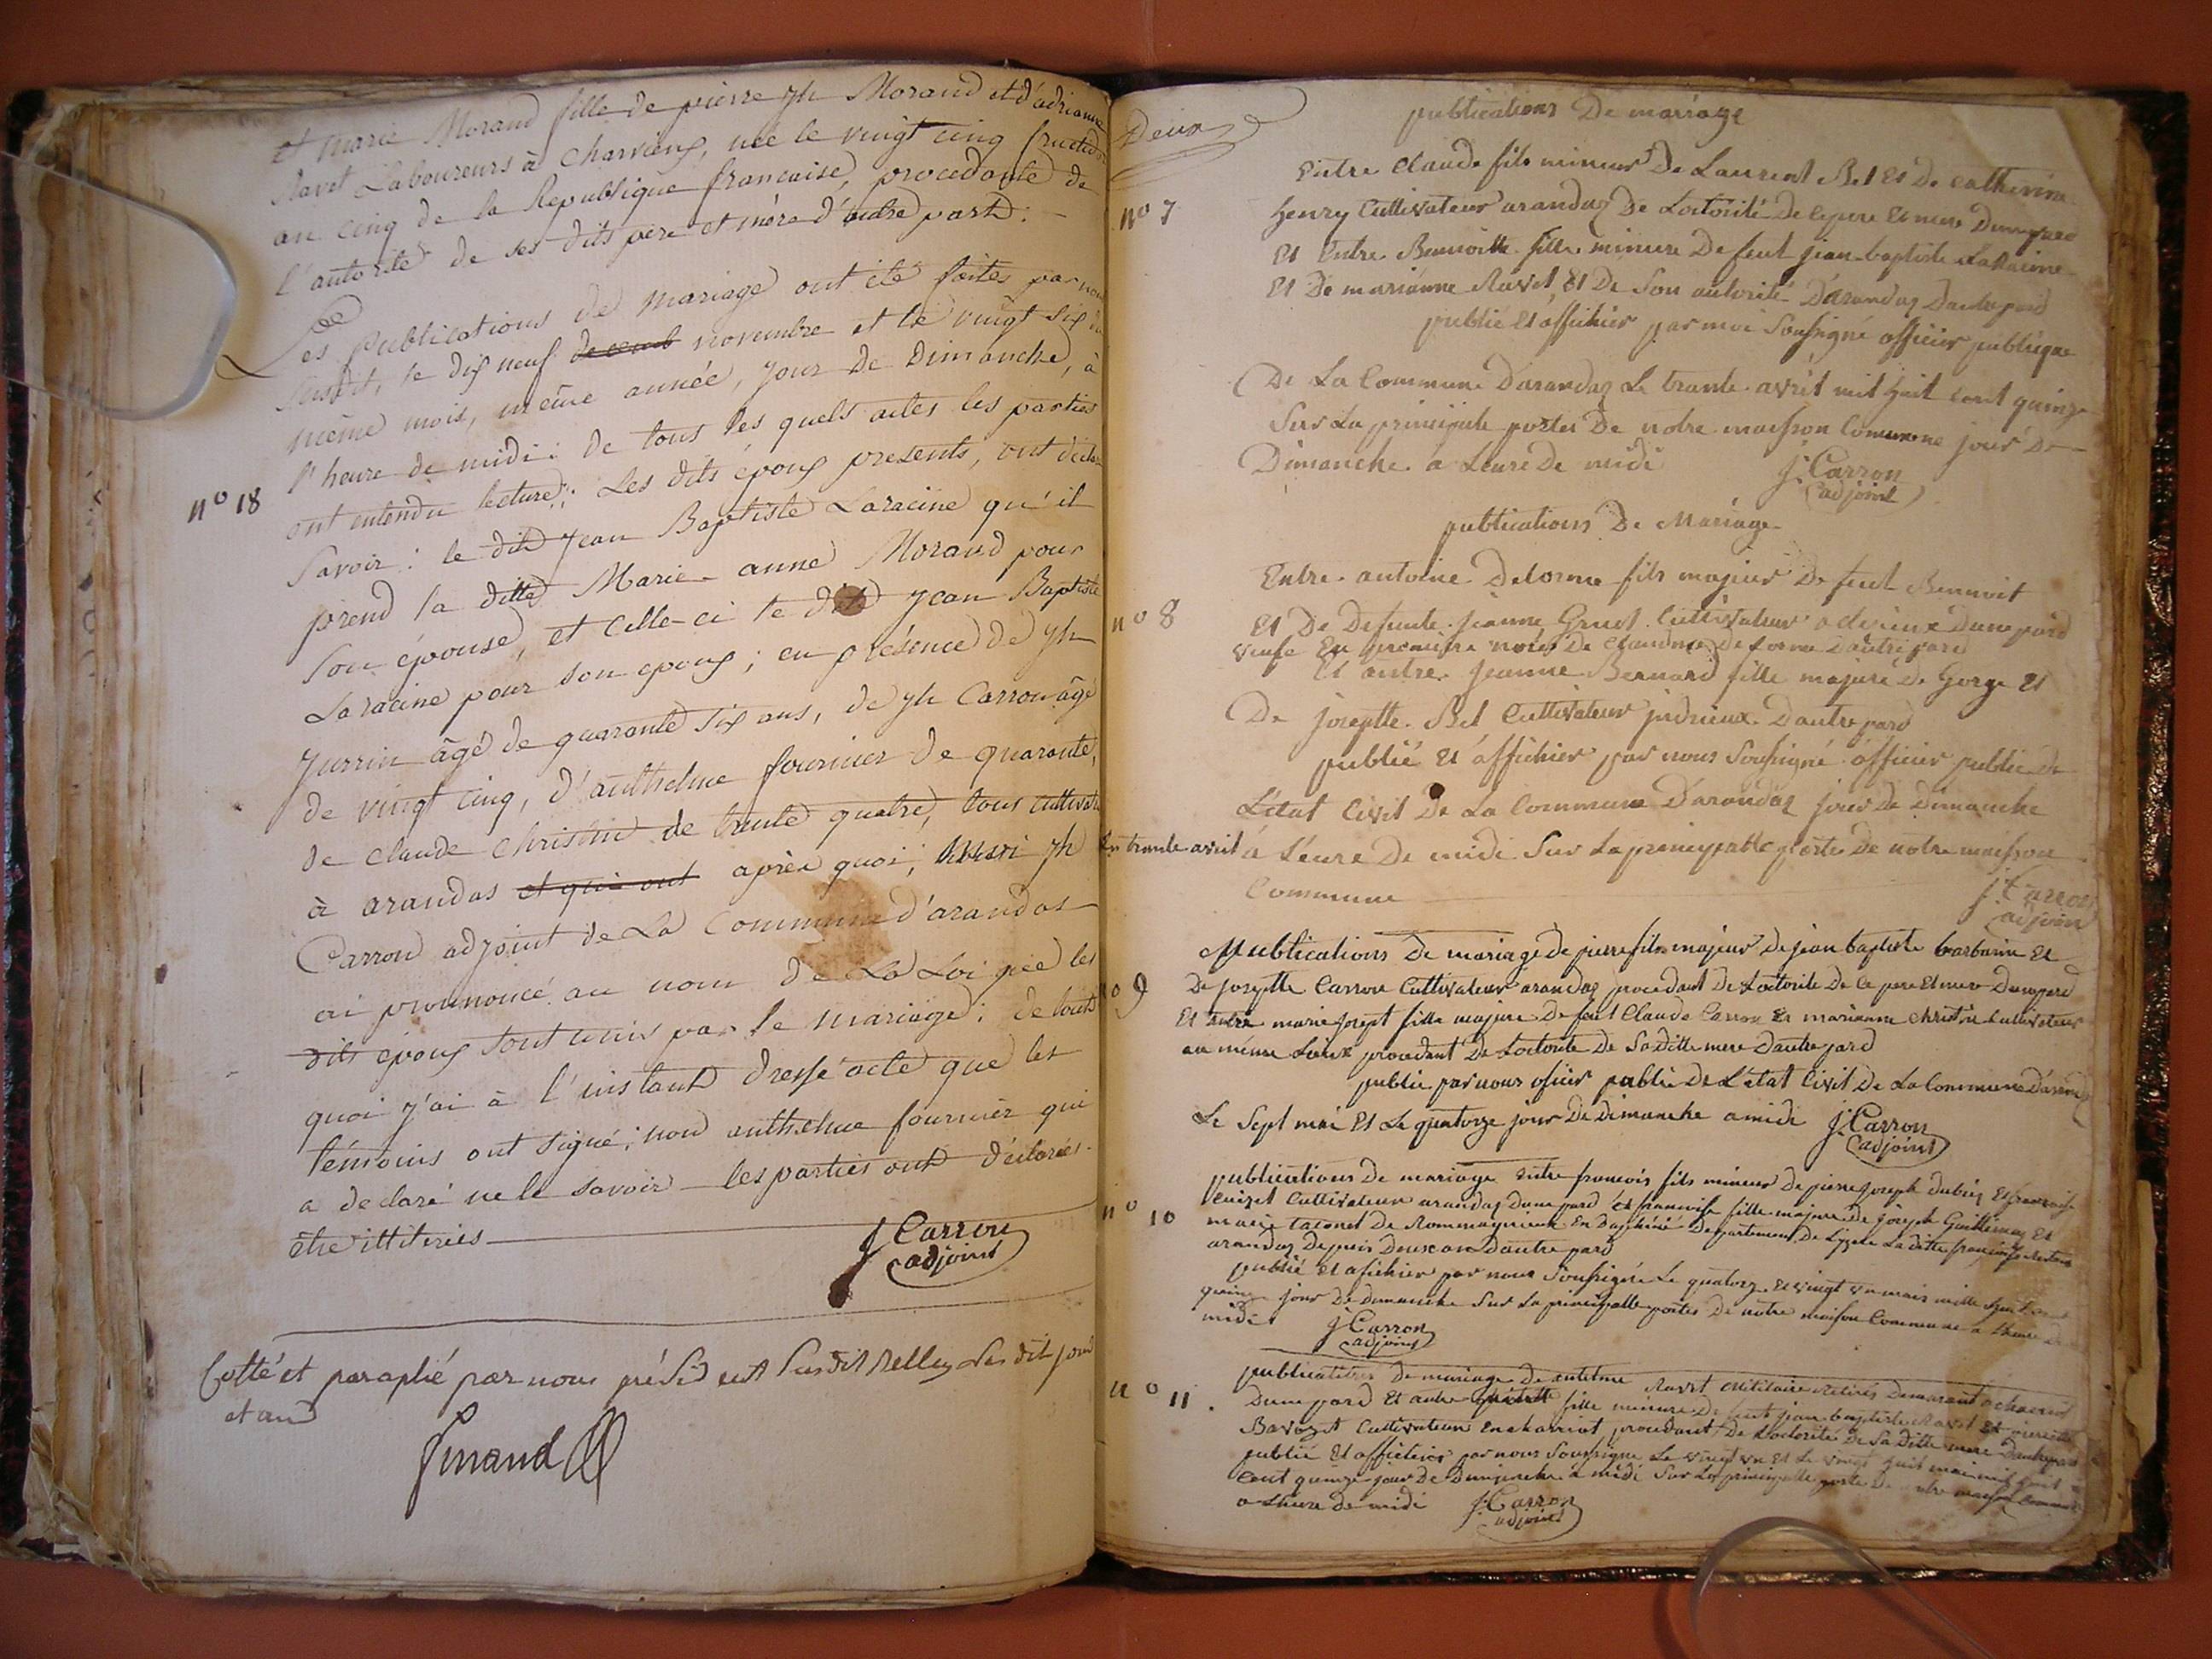 et marie Morand fille de pierre jh Morand et d'adrianne
Ravet Laboureurs à Charvieux, née le vingt cinq fructidor
an cinq de la Republique francaise, procedante de
l'autorité de ses dits père et mère d'autre part :
Les Publications de Mariage ont été faites par nous
susdit, le dix neuf decemb novembre et le vingt six du
même mois, même année, jour de Dimanche, à
l'heure de midi : de tous les quels actes les parties
nº 18
ont entendu lecture ; Les dits époux presents, ont déclaré
Savoir : le dit Jean Baptiste Laracine qu'il
prend la ditte Marie-anne Morand pour
son épouse, et celle-ci le dit Jean Baptiste
Laracine pour son epoux ; en présence de jh
Jurrin âgé de quarante six ans, de jh Carron âgé
de vingt cinq, d'anthelme fournier de quarante,
de claude Christin de trente quatre, tous cultivateurs
à arandas et qui ont après quoi, jh
Carron adjoint de La Commune d'arandas
ai prononcé au nom de La Loi que les
dits époux sont unis par le mariage ; de tout
quoi j'ai à l'instant dressé acte que les
témoins ont signé ; non anthelme fournier qui
a declaré ne le savoir les parties ont déclarées
être illiterées
J Carron
adjoint
Cotté et paraphé par nous président susdit Belley Les dit jour
et an
Deux
publications De mariage
Entre Claude fils mineur De Laurent Bel Et De catherine
nº 7
henry Cultivateur arandas De Lotorité De ce pere Et mere Dune pard
Et Entre Bennoitte fille mineure De feut jean-baptiste LaRacine
Et De marianne Ravet, Et De Son autorité D'arandas Dautre pard
publié Et affichier par moi Soussigné officier publique
De La Commune D'arandas Le trante avril mil huit cent quinze
Sur La principale portes De notre maisson Commune jour De
Dimanche a Leure De midi
J. Carron
adjoint
publications De Mariage
Entre antoine Delorme fils majeur De feut Bennoit
nº 8
Et De Defunte jeanne Gruet Cultivateur Dune pard
veuf En premiere nose De Claudine Delorme Dautre pard
Et autre Jeanne Bernard fille majure De Gorge Et
De joseptte Bel Cultivateur Dautre pard
publié Et affichier par nous Soussigné officier public de
L'etat Civil De La Commune D'arandas jour De Dimanche
En trante avril à L'eure De midi Sur La principalle porte De notre maisson
Commune
J. Carron
adjoint
Publications De mariage de pierre fils majeur De jean baptiste barbarin Et
nº 9
De joseptte Carron Cultivateur arandas procedant De Lotorite De Ce pere Et mere Dune pard
Et Entre marie josept fille majure De feut Claude Carron Et marianne Christin Cultivateur
au même Lieux procedant De Lotorite De Saditte mere Dautre pard
public par nous oficier public De L'etat Civil De La Commune D'arandas
Le Sept mai Et Le quatorze jour De Dimanche a midi
J. Carron
adjoint
publications De mariage Entre francois fils mineur De pierre joseph dubois Et francoise
Cultivateur arandas Dune pard Et francoise fille majure De joseph Et
nº 10
marie De En Dauphiné Departement De L'izere La ditte francoise
arandas Depuis Deux an Dautre pard
publié Et afichier par nous Soussigné Le quatorze Et vingt un mais mille huit Cent
quinze jour De Dimanche Sur La principalle portes De notre maison Commune a L'heure De
midi
J Carron
adjoint
publications De mariage De antelme Ravet Militaire Retirés Demeurant
nº 11.
Dune pard Et autre fille mineure De feut jean baptiste Ravet Et
Bavozet Cultivateur procedant De Lotorité De Sa Ditte mere Dautre pard
publié Et affichier par nous Soussigné Le vingt un Et Le vingt huit mai mil huit
Cent quinze jour De Dimanche a midi Sur La principalle porte De notre maison Commune
a L'heure de midi
J. Carron
adjoint